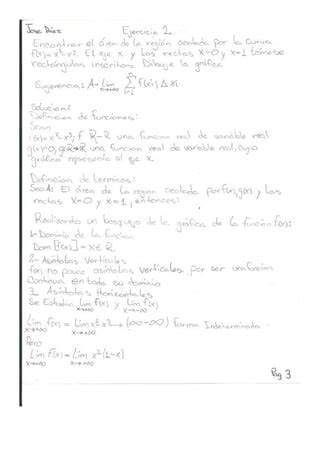 Jose Diaz Ejercicio 2
Encontrar el área de la región acotada por la curva
f(x)= x²-x³. El eje x y las rectas x=0 y x=1 tomese
rectángulos inscritos. Dibuje la gráfica
Sugerencia: A= Lim n→∞ Σ i=1 f(xi) Δxi
Solucion:
Definicion de funciones:
Sean
f(x)= x²-x³, f R→R una funcion real de variable real
g(x)=0, g: R→R una funcion real de variable real, cuya
gráfica representa al eje x.
Definicion de terminos:
Sea A: El área de la region acotada por f(x), g(x) y las
rectas x=0 y x=1, entonces:
Realizando un bosquejo de la gráfica de la función f(x):
1- Dominio de la funcion
Dom [f(x)] = x∈ R
2- Asintotas Verticales
f(x) no posee asintotas verticales por ser una funcion
Continua en todo su dominio
3_ Asintotas Horizontales
Se Estudia Lim f(x) y Lim f(x)
x→+∞ x→-∞
Lim f(x) = Lim x²-x³ → (∞-∞) forma Indeterminada
x→+∞ x→+∞
Pero
Lim f(x) = Lim x²(1-x)
x→+∞ x→+∞
Pag 3